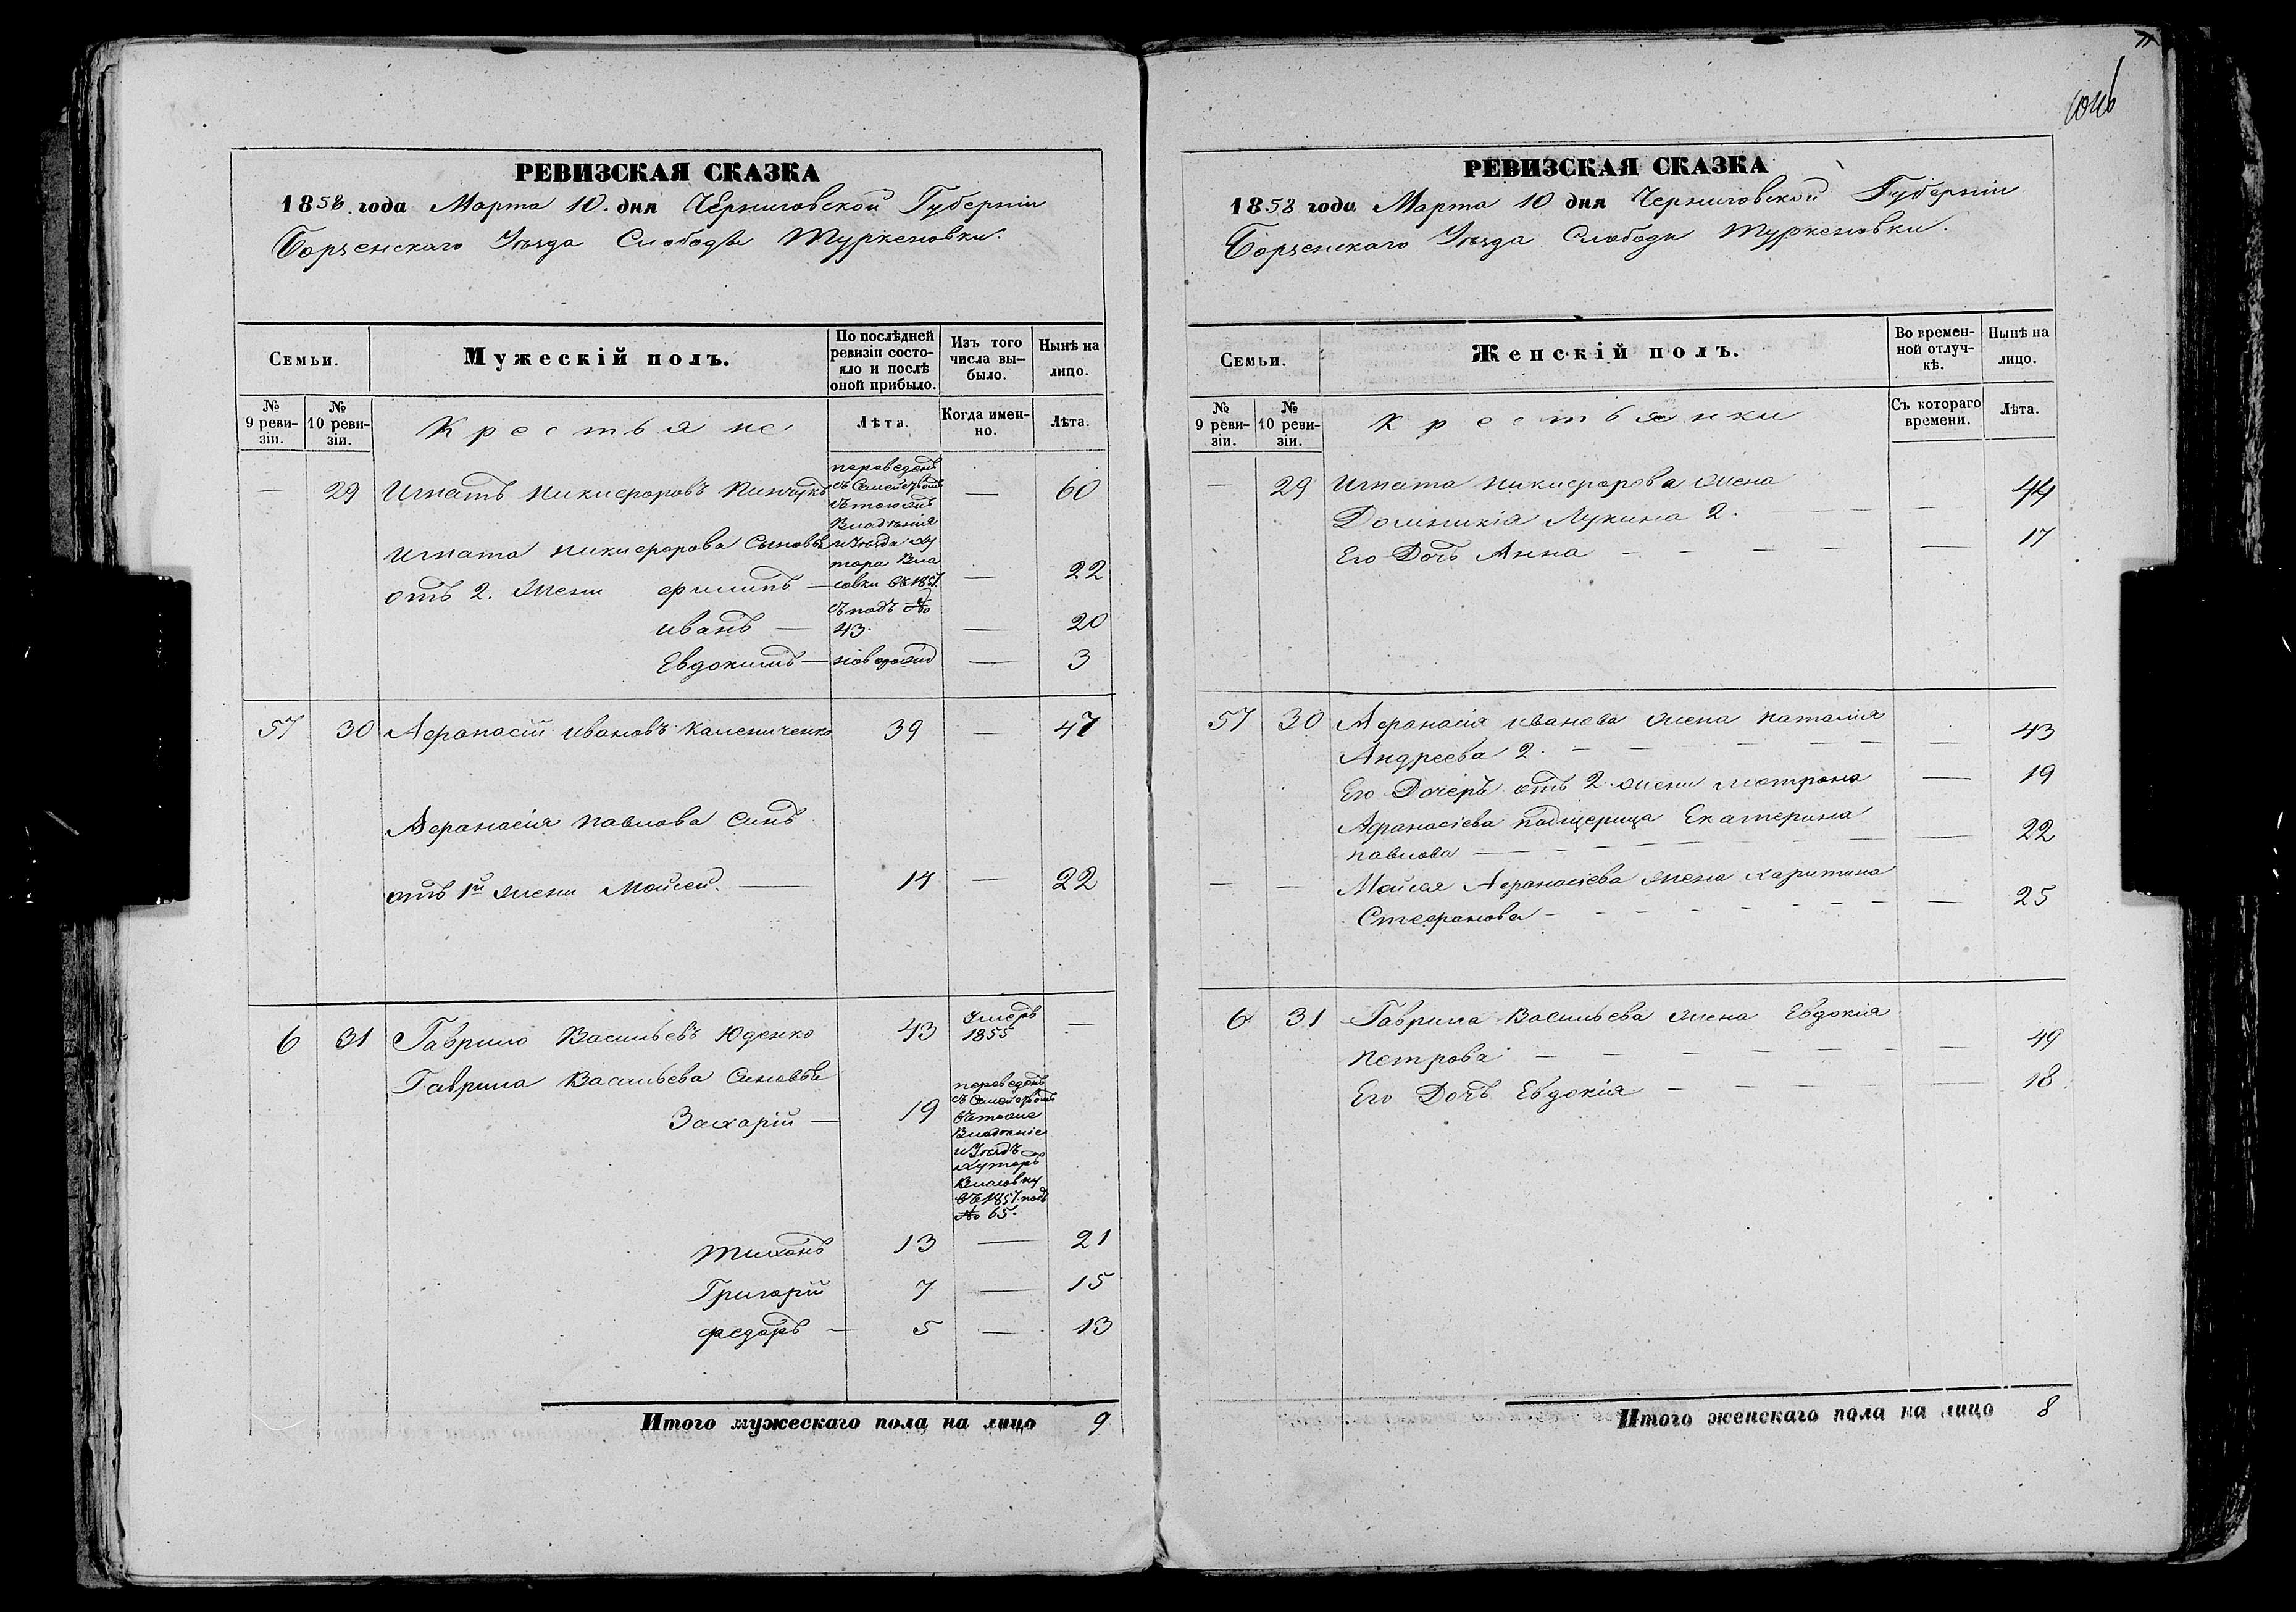 РЕВИЗСКАЯ СКАЗКА
1858 года Марта 10. дня Черниговской Губерніи
Борзенскаго Уѣзда Слободы Туркеновки.
Семьи.
Мужескій полъ.
По послѣдней
ревизіи состо-
яло и послѣ
оной прибыло.
Изъ того
числа вы-
было.
Нынѣ на
лицо.
№
9 реви-
зіи.
№
10 реви-
зіи.
Крестьяне
Лѣта.
Когда имен-
но.
Лѣта.
— 29 Игнатъ Никифоровъ Пинчукъ — 60
переведенъ
съ Семействомъ
съ того жъ
Владѣнія
и Уѣзда Ху
тора Вла
совки въ 1857.
съ подъ №
43.
Игната Никифорова Сыновья
отъ 2. жени Филипъ — — 22
Иванъ — — 20
Евдокимъ — новорожд — 3
57 30 Афанасій Ивановъ Калениченко 39 — 47
Афанасія Павлова Синъ
отъ 1й жени Мойсей. — 14 — 22
6 31 Гаврило Васильевъ Юденко 43 Умеръ —
1855
Гаврила Васильева Синовья
Захарій — 19
переведенъ
съ Семействомъ
въ тоже
Владѣніе
и Уѣздъ
Хуторъ
Власовку
въ 1857. подъ
№ 65.
Тихонъ 13 — 21
Григорій 7 — 15
Федоръ — 5 — 13
Итого мужескаго пола на лицо 9
РЕВИЗСКАЯ СКАЗКА
1858 года Марта 10 дня Черниговской Губерніи
Борзенскаго Уѣзда Слободи Туркеновки.
Семьи.
Женскій полъ.
Во времен-
ной отлуч-
кѣ.
Нынѣ на
лицо.
№
9 реви-
зіи.
№
10 реви-
зіи.
Крестьянки
Съ котораго
времени.
Лѣта.
— 29 Игната Никифорова жена
Доминикія Лукина 2. — — 44
Его Дочь Анна — — — — — 17
57 30 Афанасія Иванова жена Наталія
Андреева 2. — — — — — 43
Его Дочерь отъ 2. жени Мотрона — 19
Афанасіева падщерица Екатерина
Павлова — — — — — 22
— — Мойсея Афанасіева жена Харитина
Стефанова — — — — — 25
6 31 Гаврила Васильева жена Евдокія
Петрова — — — — — 49
Его Дочь Евдокія — — — — — 18.
Итого женскаго пола на лицо 8